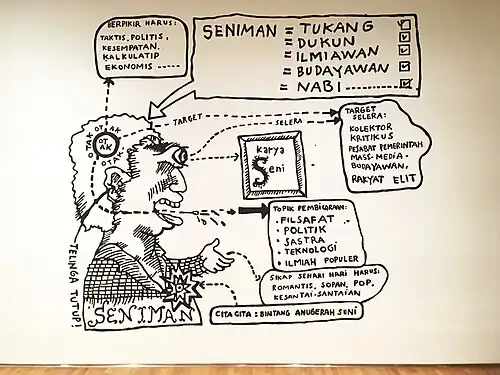 BERPIKIR HARUS:
TAKTIS, POLITIS,
KESEMPATAN,
KALKULATIP
EKONOMIS
SENIMAN = TUKANG
= DUKUN
= ILMIAWAN
= BUDAYAWAN
= NABI
OTAK OTAK
OT
AK
OTAK OTAK
TARGET
SELERA
TARGET
SELERA:
KOLEKTOR
KRITIKUS
PEJABAT PEMERINTAH
MASS-MEDIA-
BUDAYAWAN,
RAKYAT ELIT
Karya
Seni
TOPIK PEMBICARAAN:
• FILSAFAT
• POLITIK
• SASTRA
• TEKNOLOGI
• ILMIAH POPULER
SIKAP SEHARI HARI HARUS:
ROMANTIS, SOPAN, POP,
KESANTAI-SANTAIAN
TELINGA TUTUP!
SENIMAN
CITA CITA : BINTANG ANUGERAH SENI